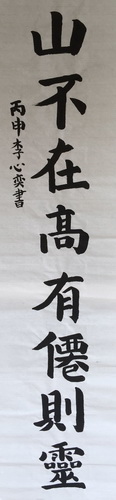 山不在高有僊則靈
丙申李心奕書